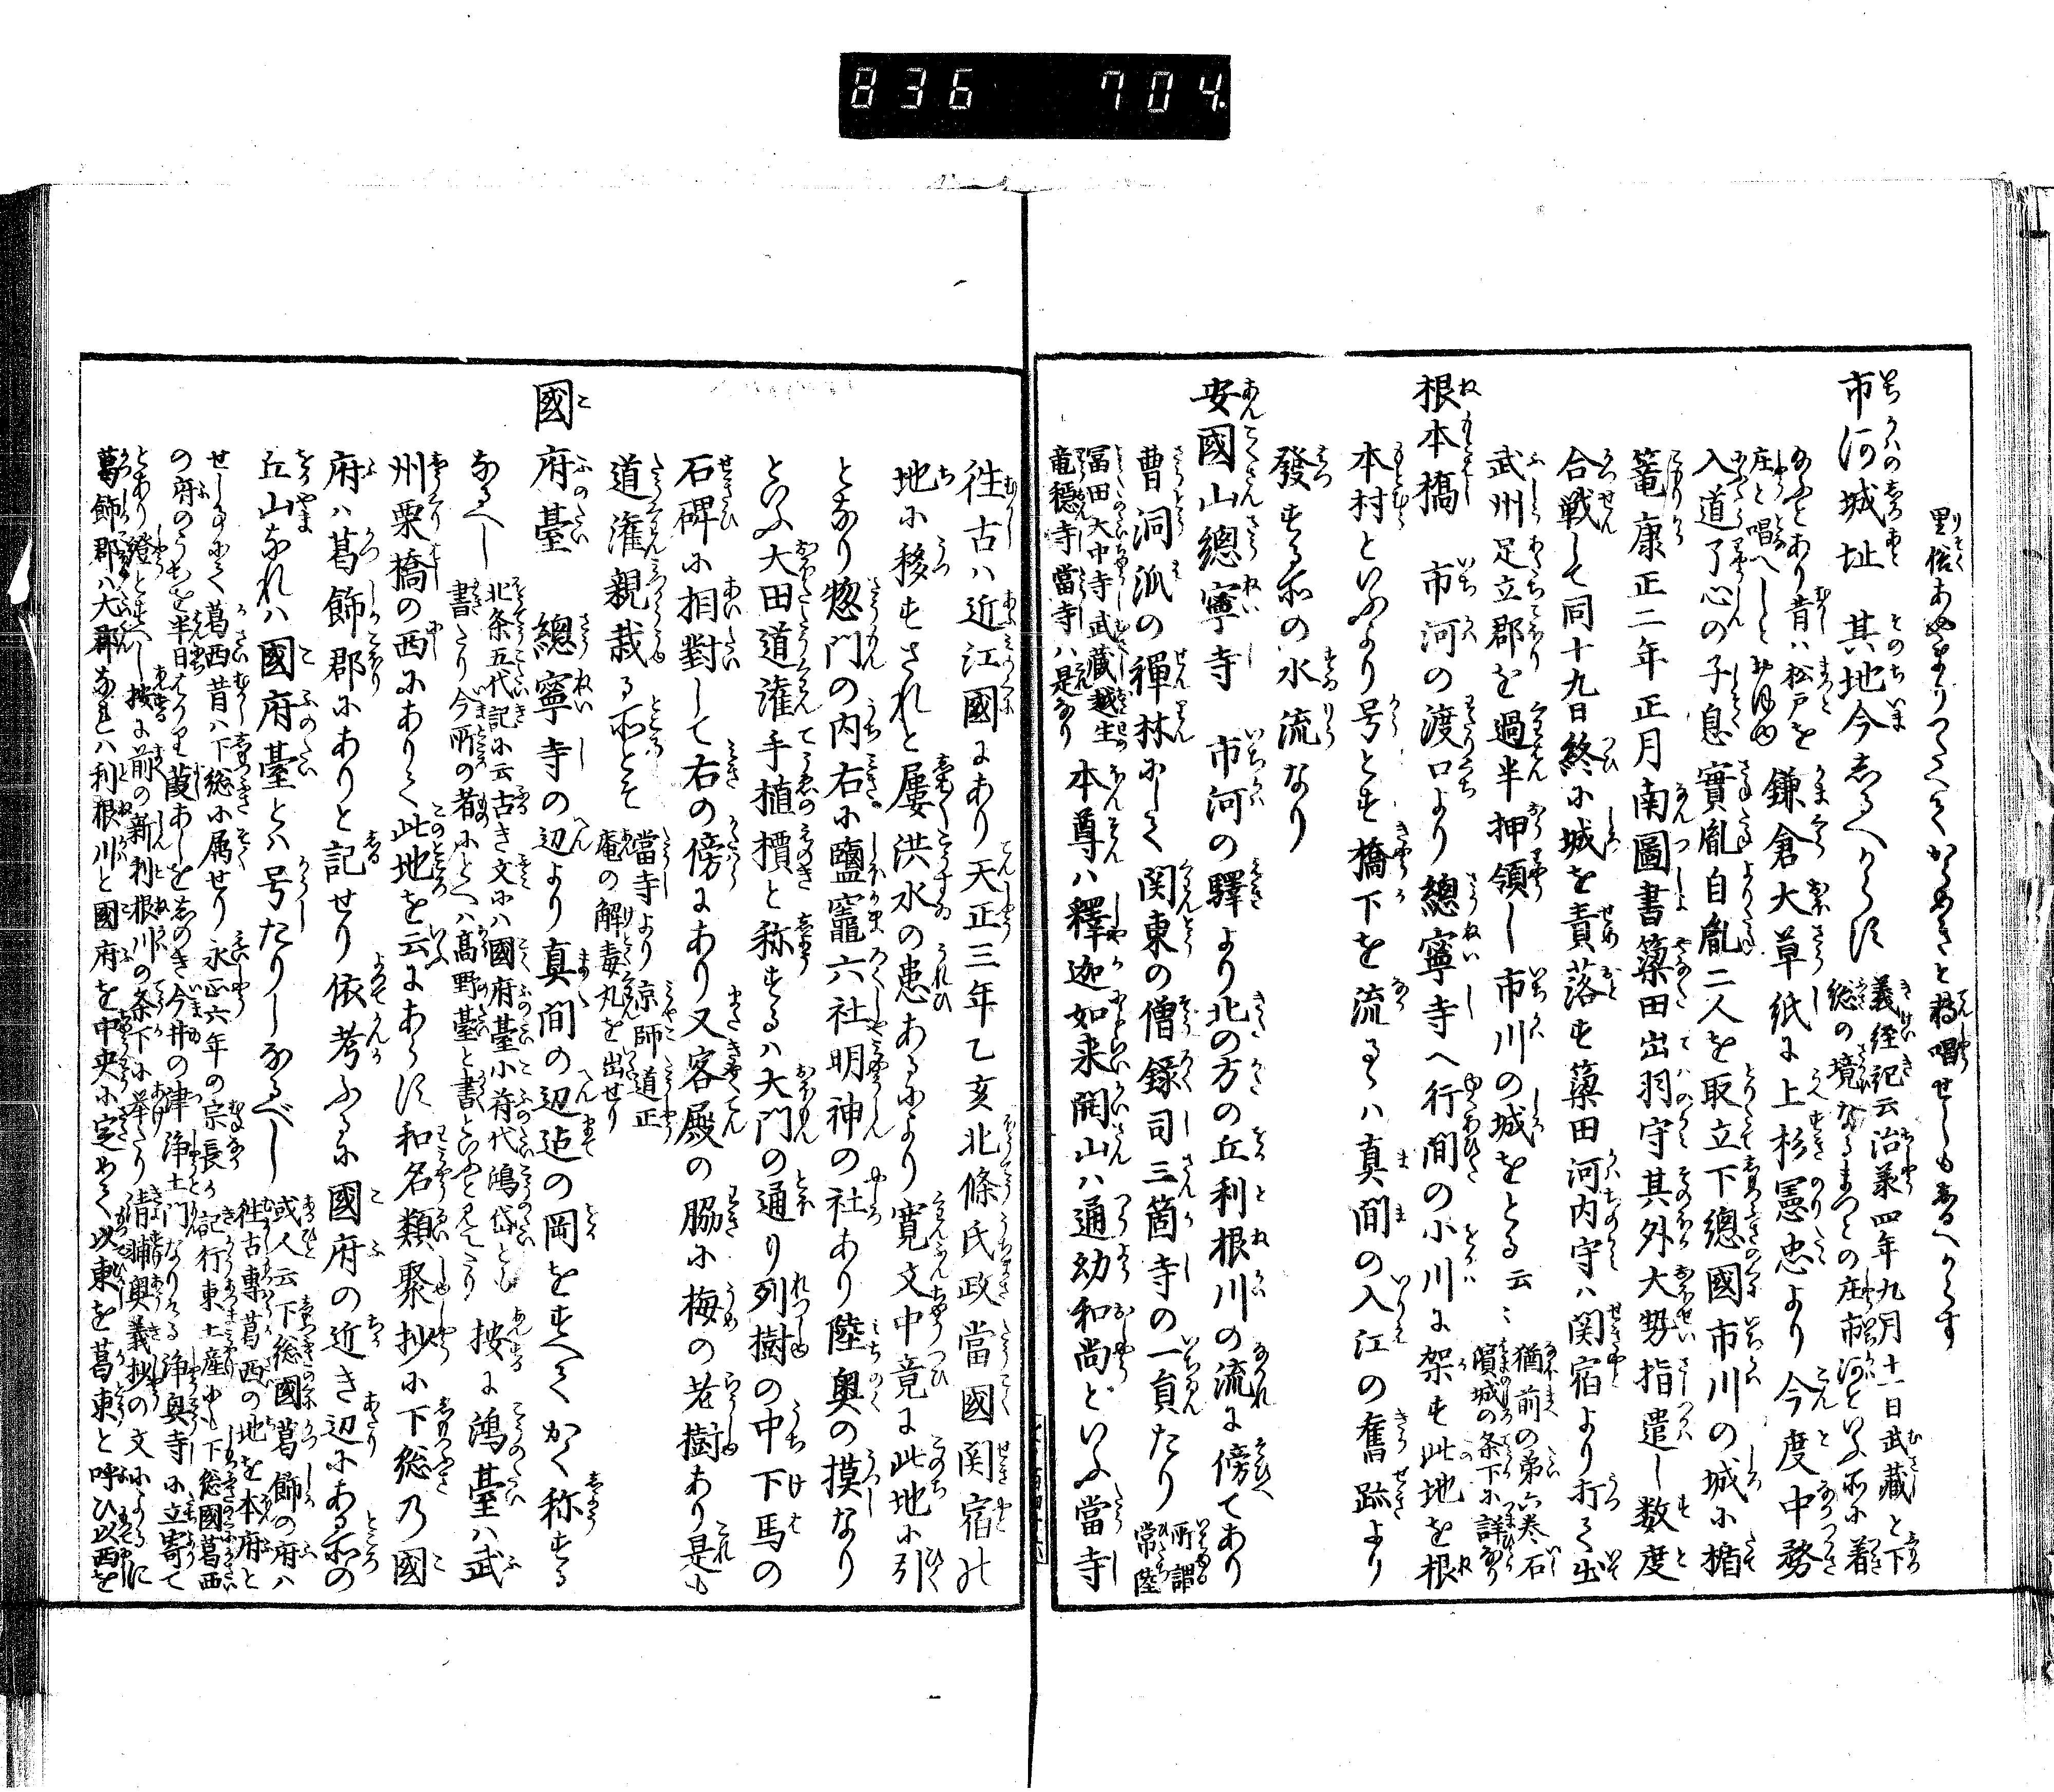 836 704.
里俗あめをまりつくてからめきと轉唱せしも知るへからす
市河城址 其地今知るへからす 義経記云治承四年九月十一日武藏と下
総の境なるまつとの庄市河といふ所に着
なふとあり昔は松戸を
庄と唱へしとおほゆ 鎌倉大草紙に上杉憲忠より今度中務
入道了心の子息實胤自胤二人を取立下總國市川の城に楯
篭康正二年正月南圖書簗田出羽守其外大勢指遣し数度
合戦して同十九日終に城を責落す簗田河内守は関宿より打て出
武州足立郡を過半押領し市川の城をとる云々 猶前の第六巻石
濱城の条下に詳なり
根本橋 市河の渡口より總寧寺へ行間の小川に架す此地を根
本村といふより号とす橋下を流るゝは真間の入江の舊跡より
發する所の水流なり
安國山總寧寺 市河の驛より北の方の丘利根川の流に傍てあり
曹洞派の禪林にして関東の僧録司三箇寺の一員たり 所謂
常陸
冨田大中寺武藏越生
竜穏寺當寺は是なり 本尊は釋迦如来開山は通幼和尚といふ當寺
往古は近江國にあり天正三年乙亥北條氏政當國関宿の
地に移すされと屡洪水の患あるにより寛文中竟に此地に引
となり惣門の内右に鹽竈六社明神の社あり陸奥の摸なり
といふ大田道潅手植檟と称するは大門の通り列樹の中下馬の
石碑に相對して右の傍にあり又客殿の脇に梅の老樹あり是も
道潅親栽る所とそ 當寺より京師道正
庵の解毒丸を出せり
國府臺 總寧寺の辺より真間の辺迠の岡をすへてかく称する
なるへし 北条五代記に云古き文には國府臺小符代鴻岱とも
書たり今所の者にとへは髙野臺と書といふと見えたり 按に鴻臺は武
州栗橋の西にありて此地を云にあらす和名類聚抄に下総乃國
府は葛飾郡にありと記せり依考ふるに國府の近き辺にある所の
丘山なれは國府臺とは号たりしなるべし 或人云下総國葛飾の府は
往古專葛西の地を本府と
せしなにて葛西昔は下総に属せり永正六年の宗長か記行東土産にも下総國葛西
の府のうちを半日はかり葭あしをしのき今井の津浄土門なりける浄興寺に立寄て
とあり證とすへし按に前の新利根川の条下に挙たり清輔奥義抄の文によるに
葛飾郡は大郡なれは利根川と國府を中央に定めて以東を葛東と呼ひ以西を